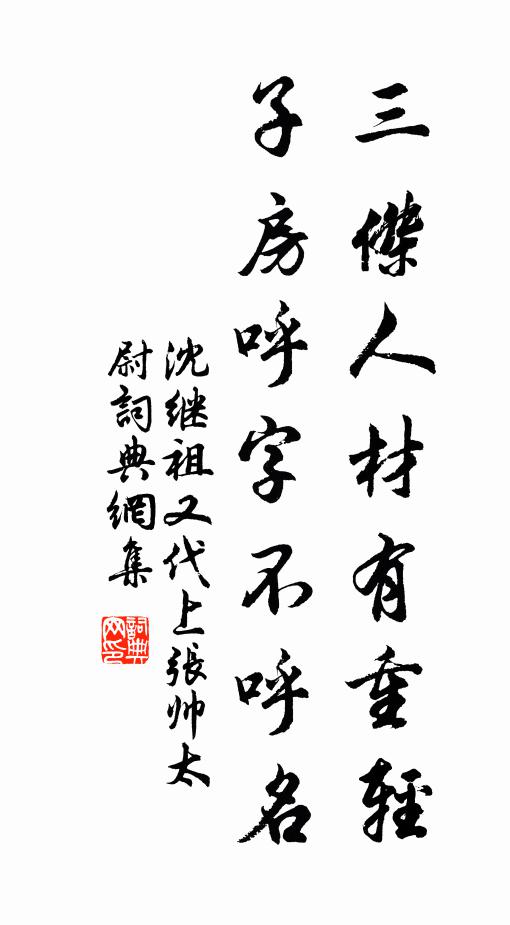 三傑人材有重輕
子房呼字不呼名
沈继祖又代上張帅太
尉詞典網集
詞典
网印